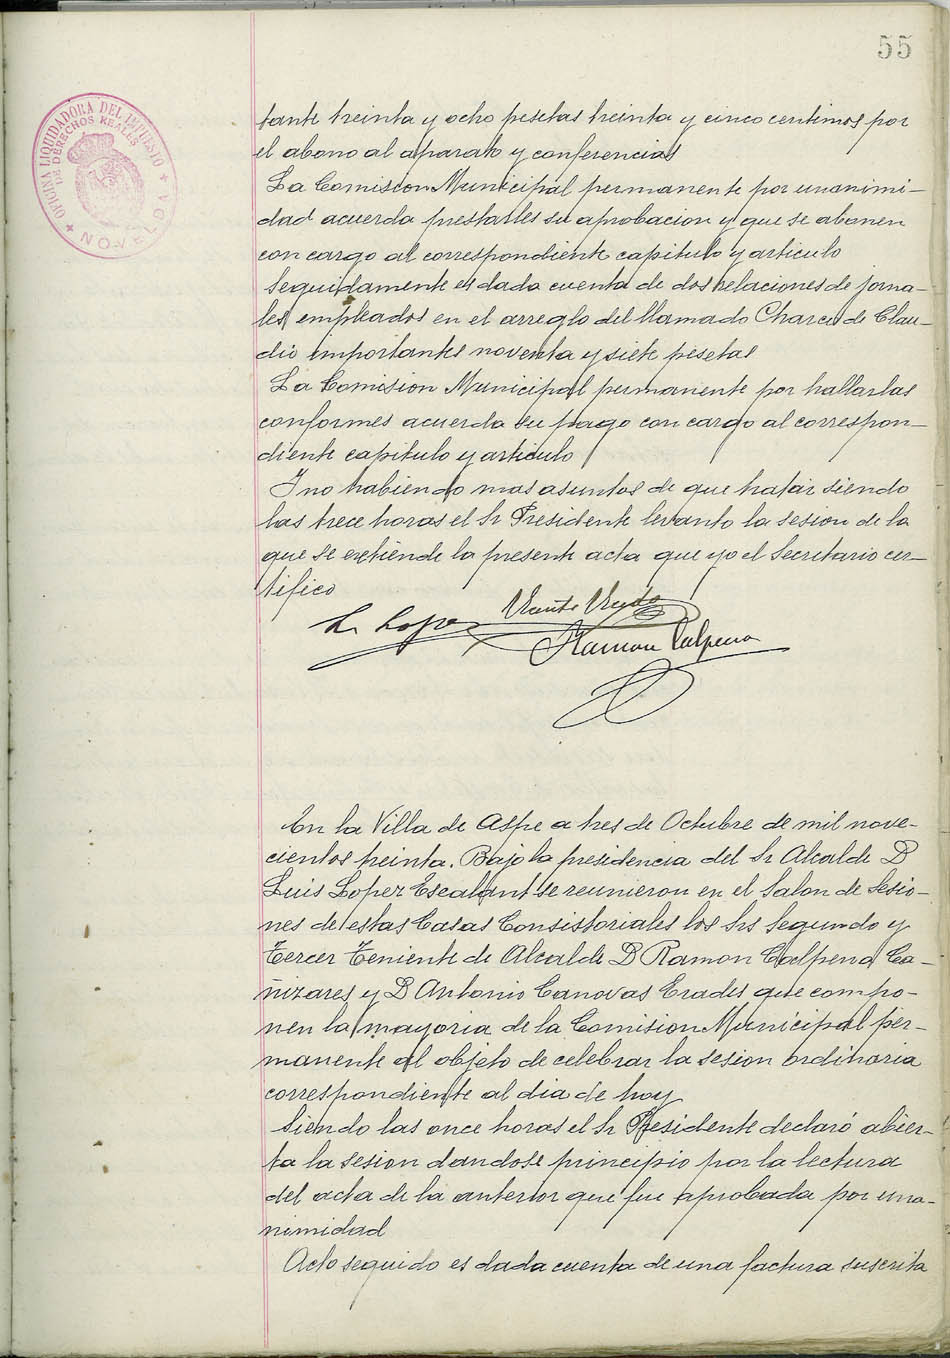 55
OFICINA LIQUIDADORA DEL IMPUESTO
DE DERECHOS REALES
NOVELDA
tante treinta y ocho pesetas treinta y cinco centimos por
el abono al aparato y conferencias
La Comision Municipal permanente por unanimi-
dad acuerda prestarles su aprobacion y que se abonen
con cargo al correspondiente capitulo y articulo
Seguidamente es dada cuenta de dos relaciones de jorna-
les empleados en el arreglo del llamado Charco de Clau-
dio importantes noventa y siete pesetas
La Comision Municipal permanente por hallarlas
conformes acuerda su pago con cargo al correspon-
diente capitulo y articulo
I no habiendo mas asuntos de que tratar siendo
las trece horas el Sr Presidente levanto la sesion de la
que se extiende la presente acta que yo el Secretario cer-
tifico
L. Lopez Vicente
Ramon Calpena
En la Villa de Aspe a tres de Octubre de mil nove-
cientos treinta. Bajo la presidencia del Sr Alcalde D
Luis Lopez Escalant se reunieron en el Salon de Sesio-
nes de estas Casas Consistoriales los Srs Segundo y
Tercer Teniente de Alcalde D Ramon Calpena Ca-
ñizares y D Antonio Canovas Erades que compo-
nen la mayoria de la Comision Municipal per-
manente al objeto de celebrar la sesion ordinaria
correspondiente al dia de hoy
Siendo las once horas el Sr Presidente declaró abier-
ta la sesion dandose principio por la lectura
del acta de la anterior que fue aprobada por una-
nimidad
Acto seguido es dada cuenta de una factura suscrita